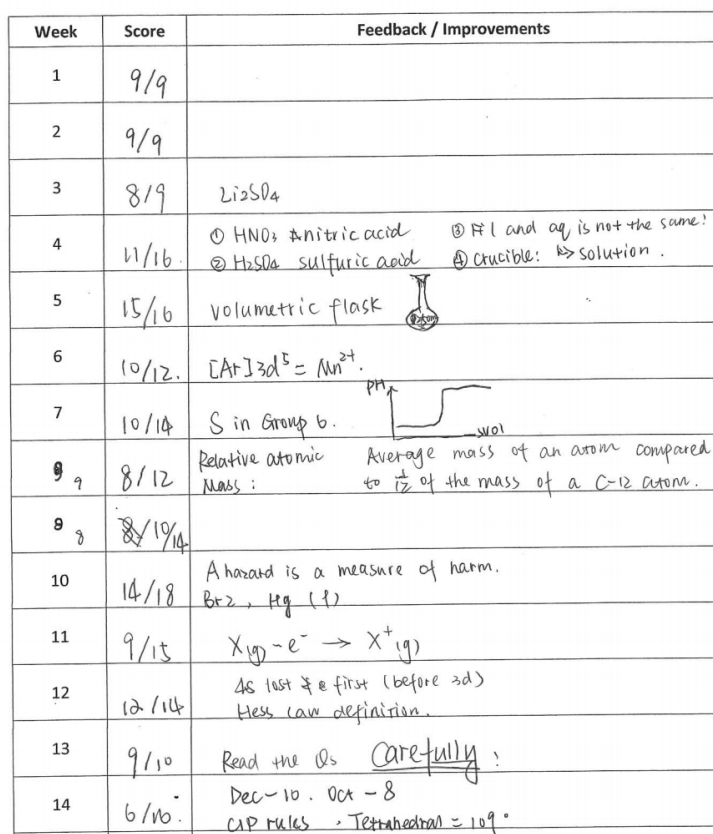 Week Score Feedback / Improvements
1 9/9
2 9/9
3 8/9 Li2SO4
4 11/16. ① HNO3 nitric acid ③ l and aq is not the same!
② H2SO4 sulfuric acid ④ crucible: solution.
5 15/16 volumetric flask
6 10/12. [Ar]3d⁵ = Mn²⁺.
7 10/14 S in Group 6. PH vol
9 8/12 Relative atomic Mass: Average mass of an atom compared
to 1/12 of the mass of a C-12 atom.
8 10/14
10 14/18 A hazard is a measure of harm.
Br2, Hg (l)
11 9/15 X(g) - e⁻ → X⁺(g)
12 12/14 4s lost e first (before 3d)
Hess law definition.
13 9/10 Read the Qs Carefully!
14 6/10. Dec-10. Oct-8
CIP rules. Tetrahedral = 109°